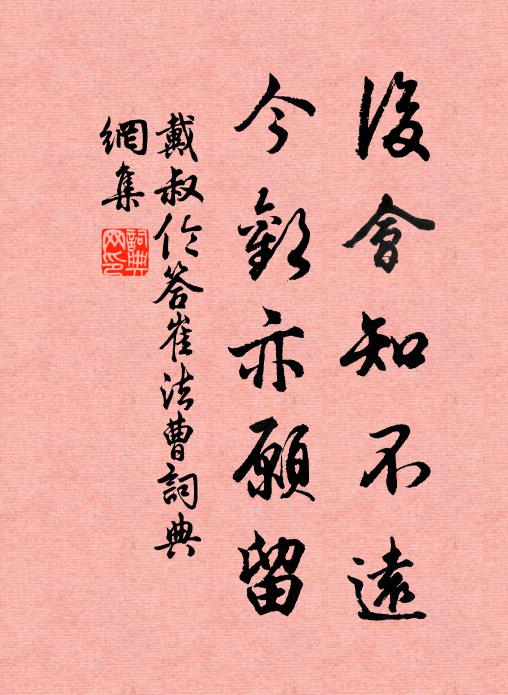 後會知不遠
今歡亦願留
戴叔伦答崔法曹詞典
網集
詞典
网印